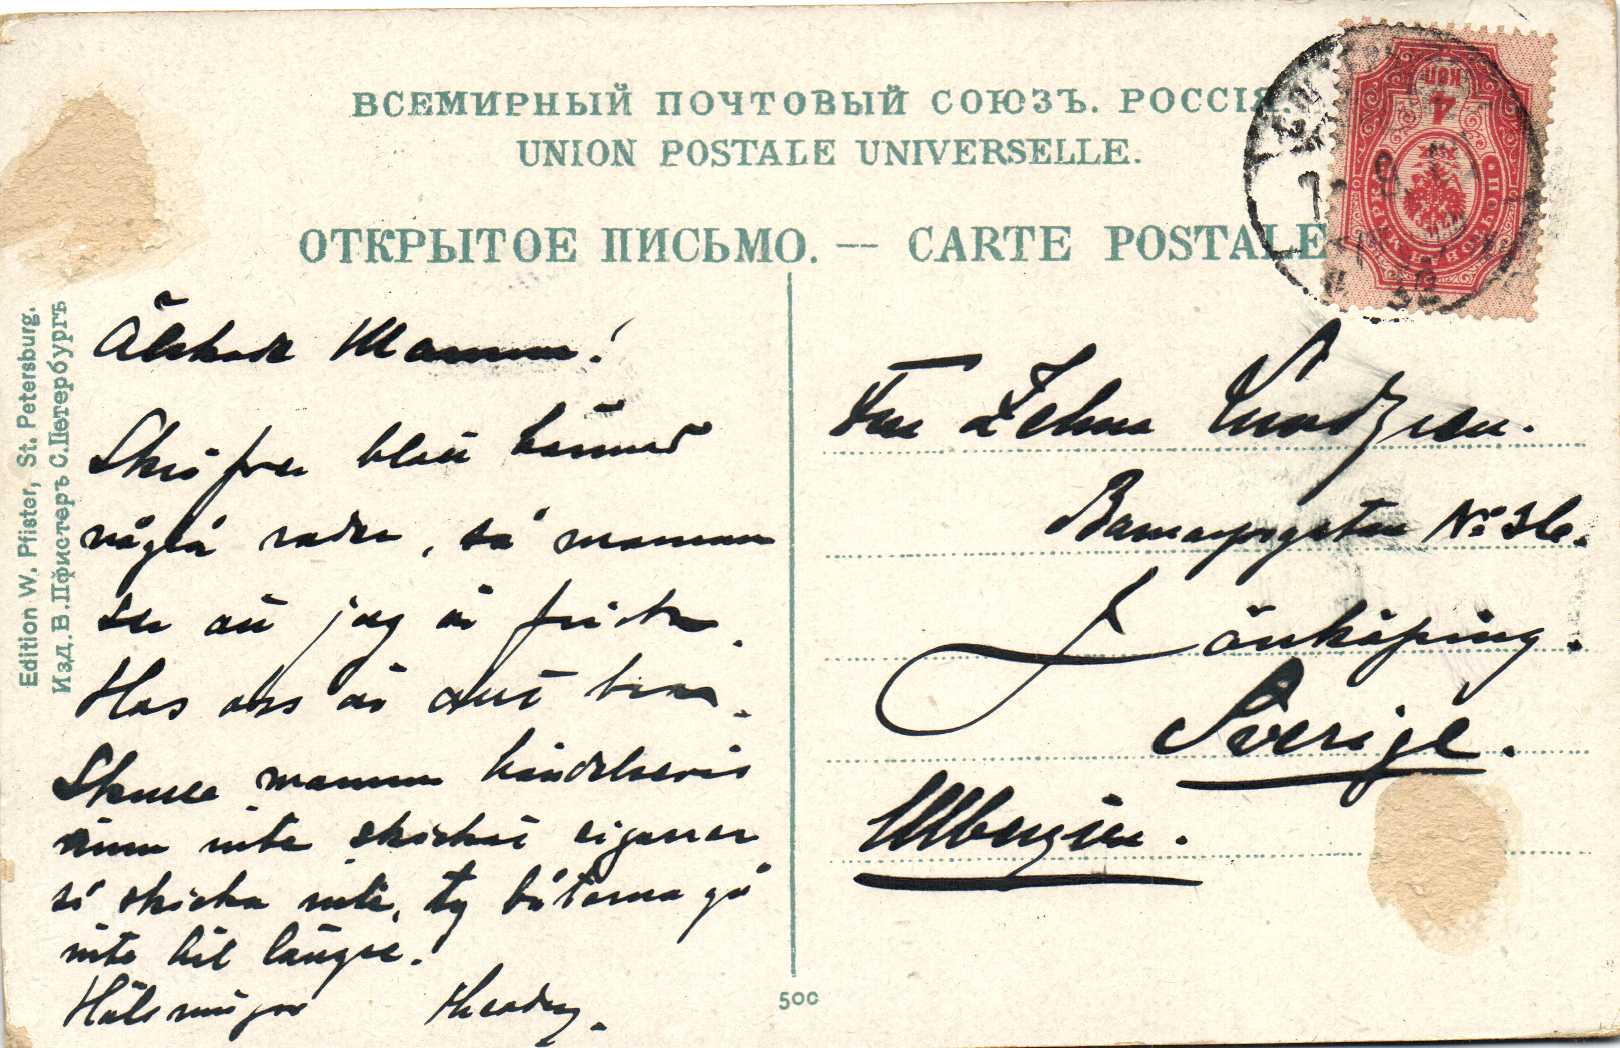 ВСЕМИРНЫЙ ПОЧТОВЫЙ СОЮЗЪ. РОССІЯ.
UNION POSTALE UNIVERSELLE.
ОТКРЫТОЕ ПИСЬМО. — CARTE POSTALE
Edition W. Pfister, St. Petersburg.
Изд. В. Пфистеръ С.Петербургъ
Älskade Mamma!
Skrifver blott hämed
några rader, så mamma
ser att jag är frisk.
Hos oss är allt bra.
Skulle mamma händelsevis
ännu inte skickat cigarrer
så skicka inte, ty båtarna gå
inte hit längre.
Hälsningar Theodor.
Fru Selma
Barnarpsgatan No 36.
Jönköping.
Sverige.
500
4 КОП